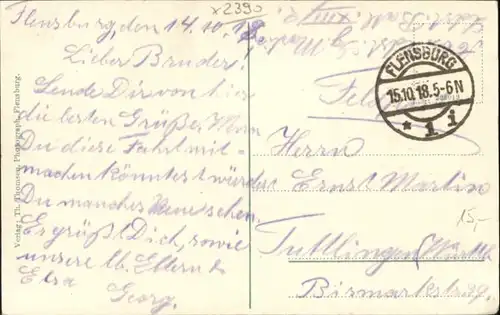 x2390
Flensburg den 14.10.18
Lieber Bruder!
Sende Dir von hier
die besten Grüße, Wenn
Du diese Fahrt mit-
machen könntest würdest
Du manches Neue sehen.
Es grüßt Dich, sowie
unsere lb. Eltern &
Elsa
Georg.
Verlag: Th. Thomsen, Photograph, Flensburg.
FLENSBURG
15.10.18.5-6N
* 1 i
Herrn
Ernst Martin
15,-
Tuttlingen
Bismarckstr.